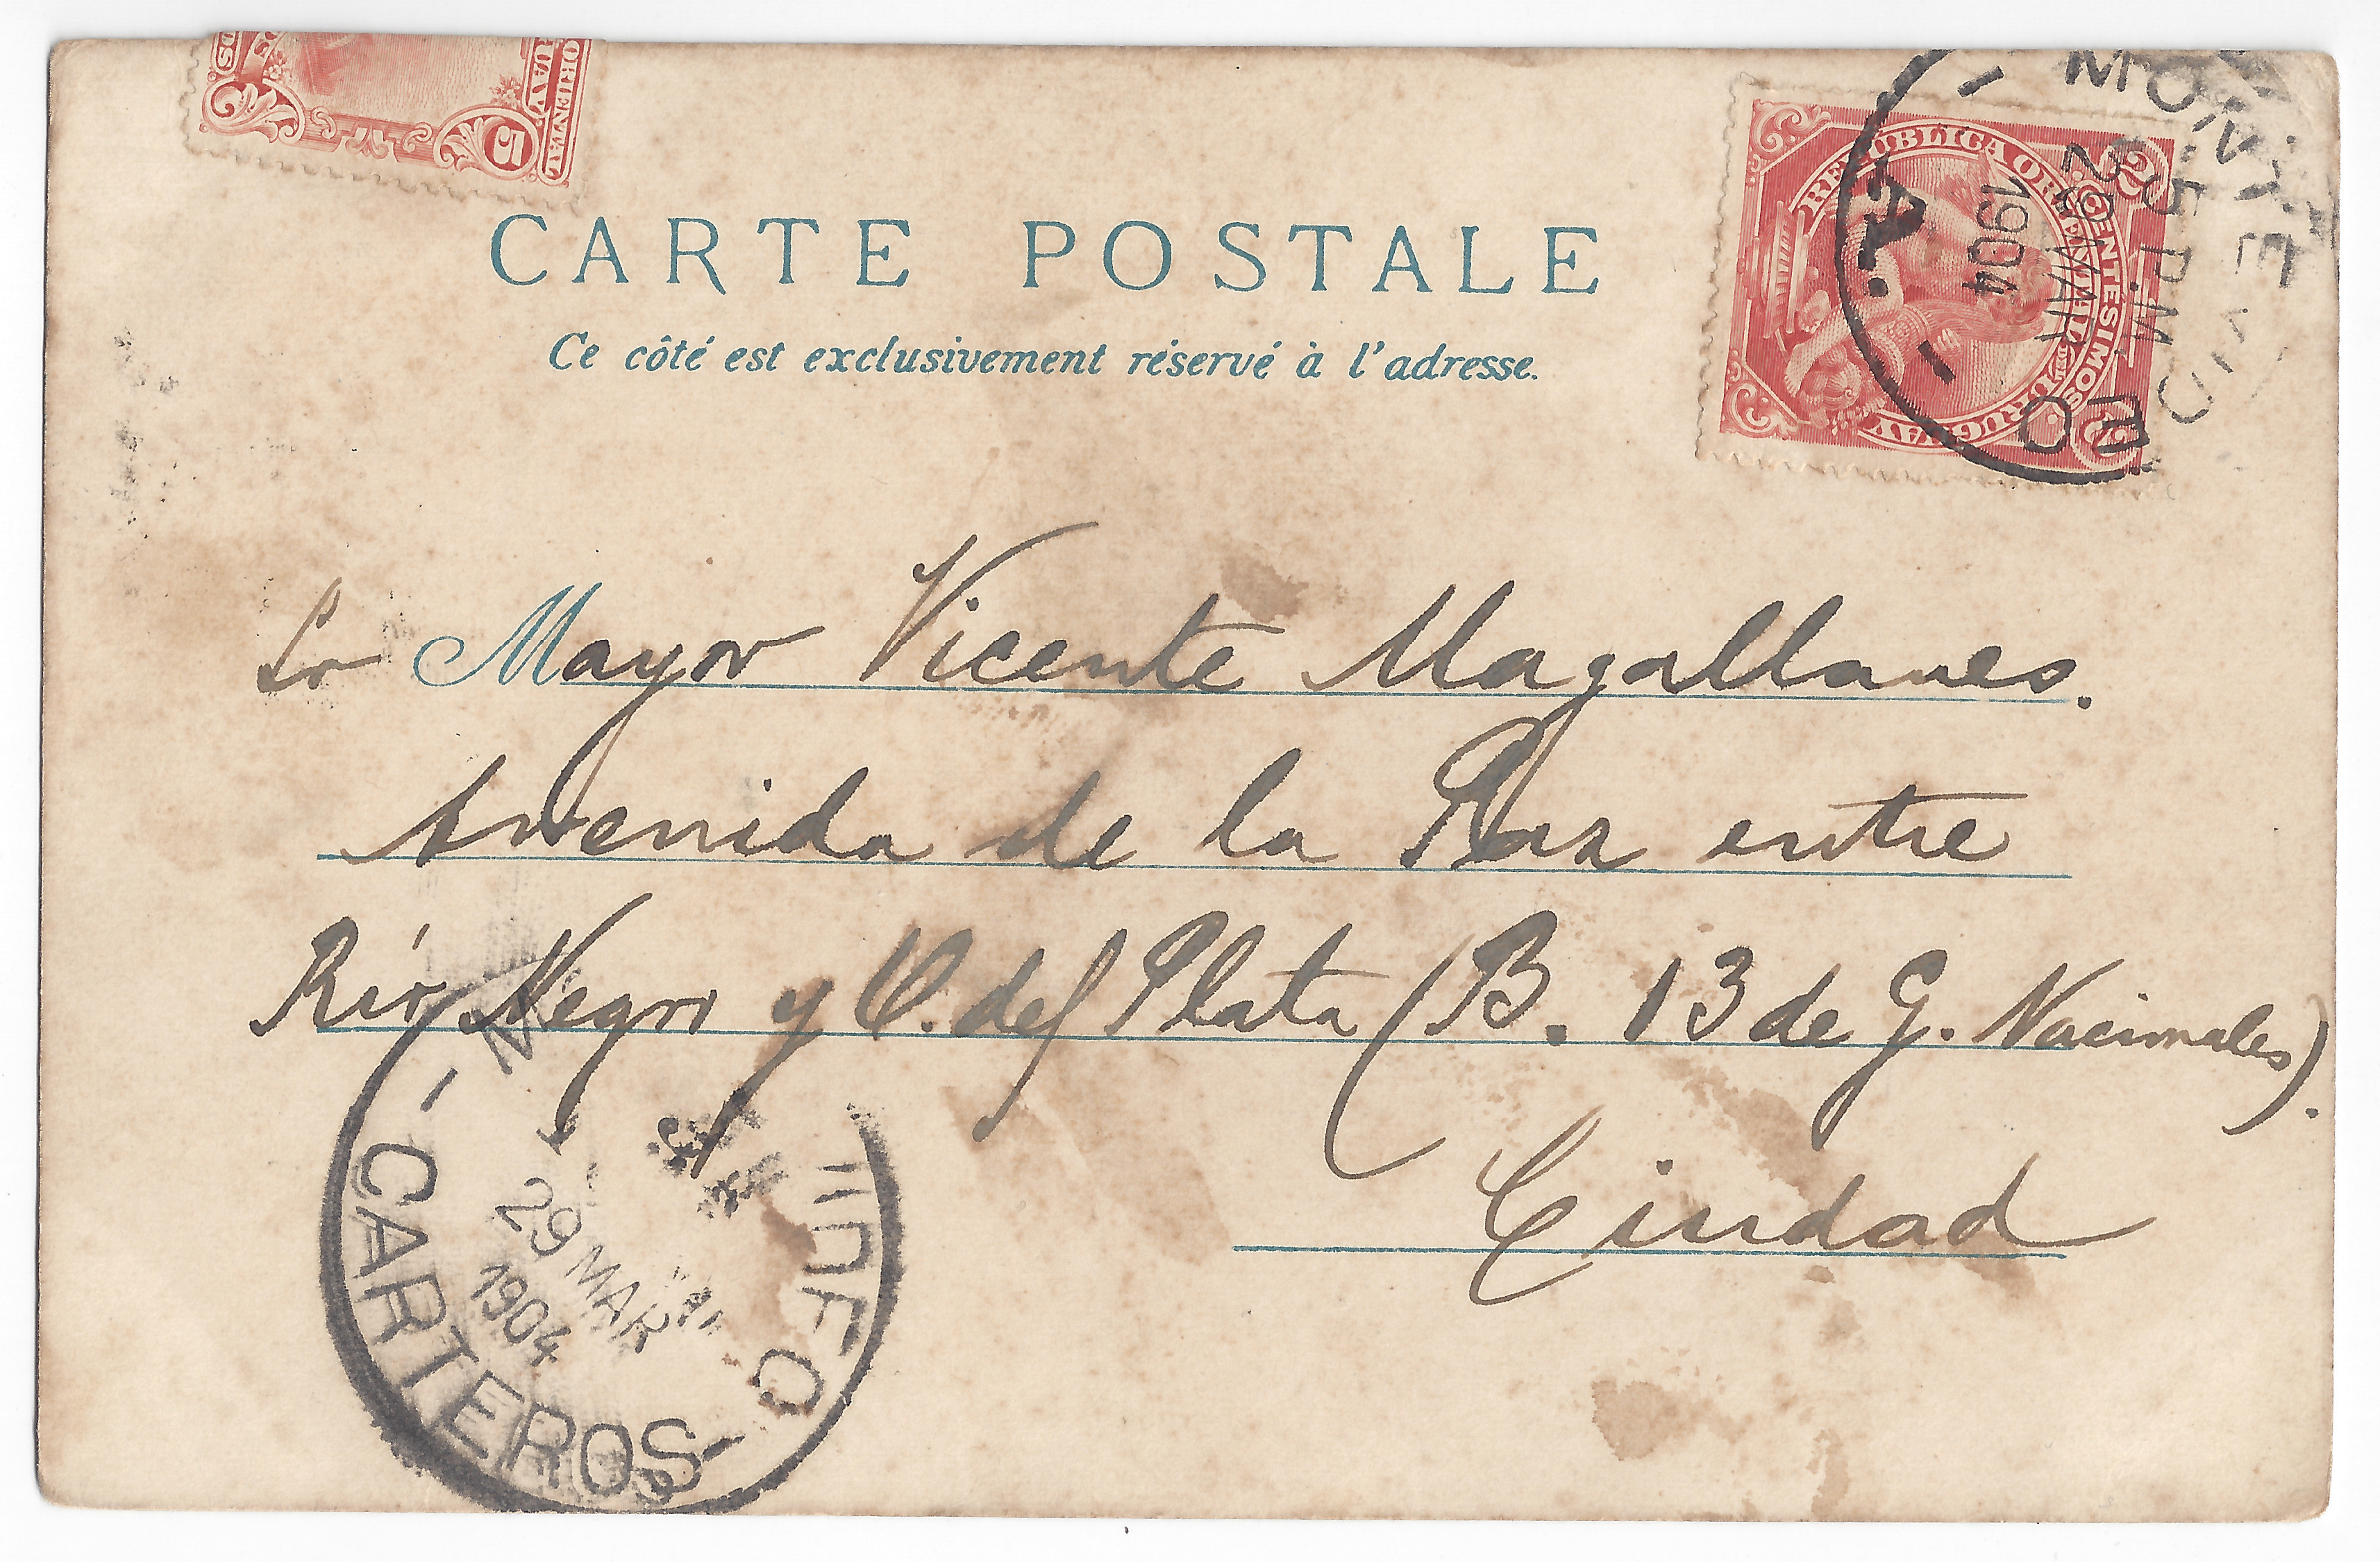 ORIENTAL
5
CARTE POSTALE
Ce côté est exclusivement réservé à l'adresse.
REPUBLICA ORIENTAL URUGUAY
2 CENTESIMOS 2
MONTEVIDEO
5 P.M.
29 MAR
1904
A.
Sr Mayor Vicente Magallanes.
Avenida de la Paz entre
Río Negro y C. del Plata (B. 13 de G. Nacionales).
Ciudad
29 MAR
1904
CARTEROS